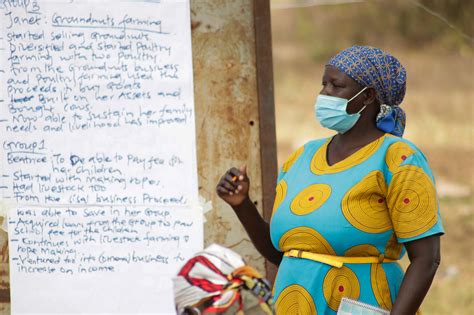 Group 3
Janet: Groundnuts farming
- Started selling Groundnuts
Diversified and started Poultry
farming with two Poultry
- from the Groundnuts business
and Poultry farming used the
Proceeds to buy goats
- Built on her Assets and
bought cows
- Now able to sustain her family
needs and livelihood has improved
Group 1
Beatrice: To be able to pay fee for
her children
- Started with making ropes,
had livestock too
- from the business Proceeds
was able to Save in her Group
- Acquired loan from the Group to pay
school fees
- Continues with livestock farming &
rope making
- Ventured into business to
increase on income